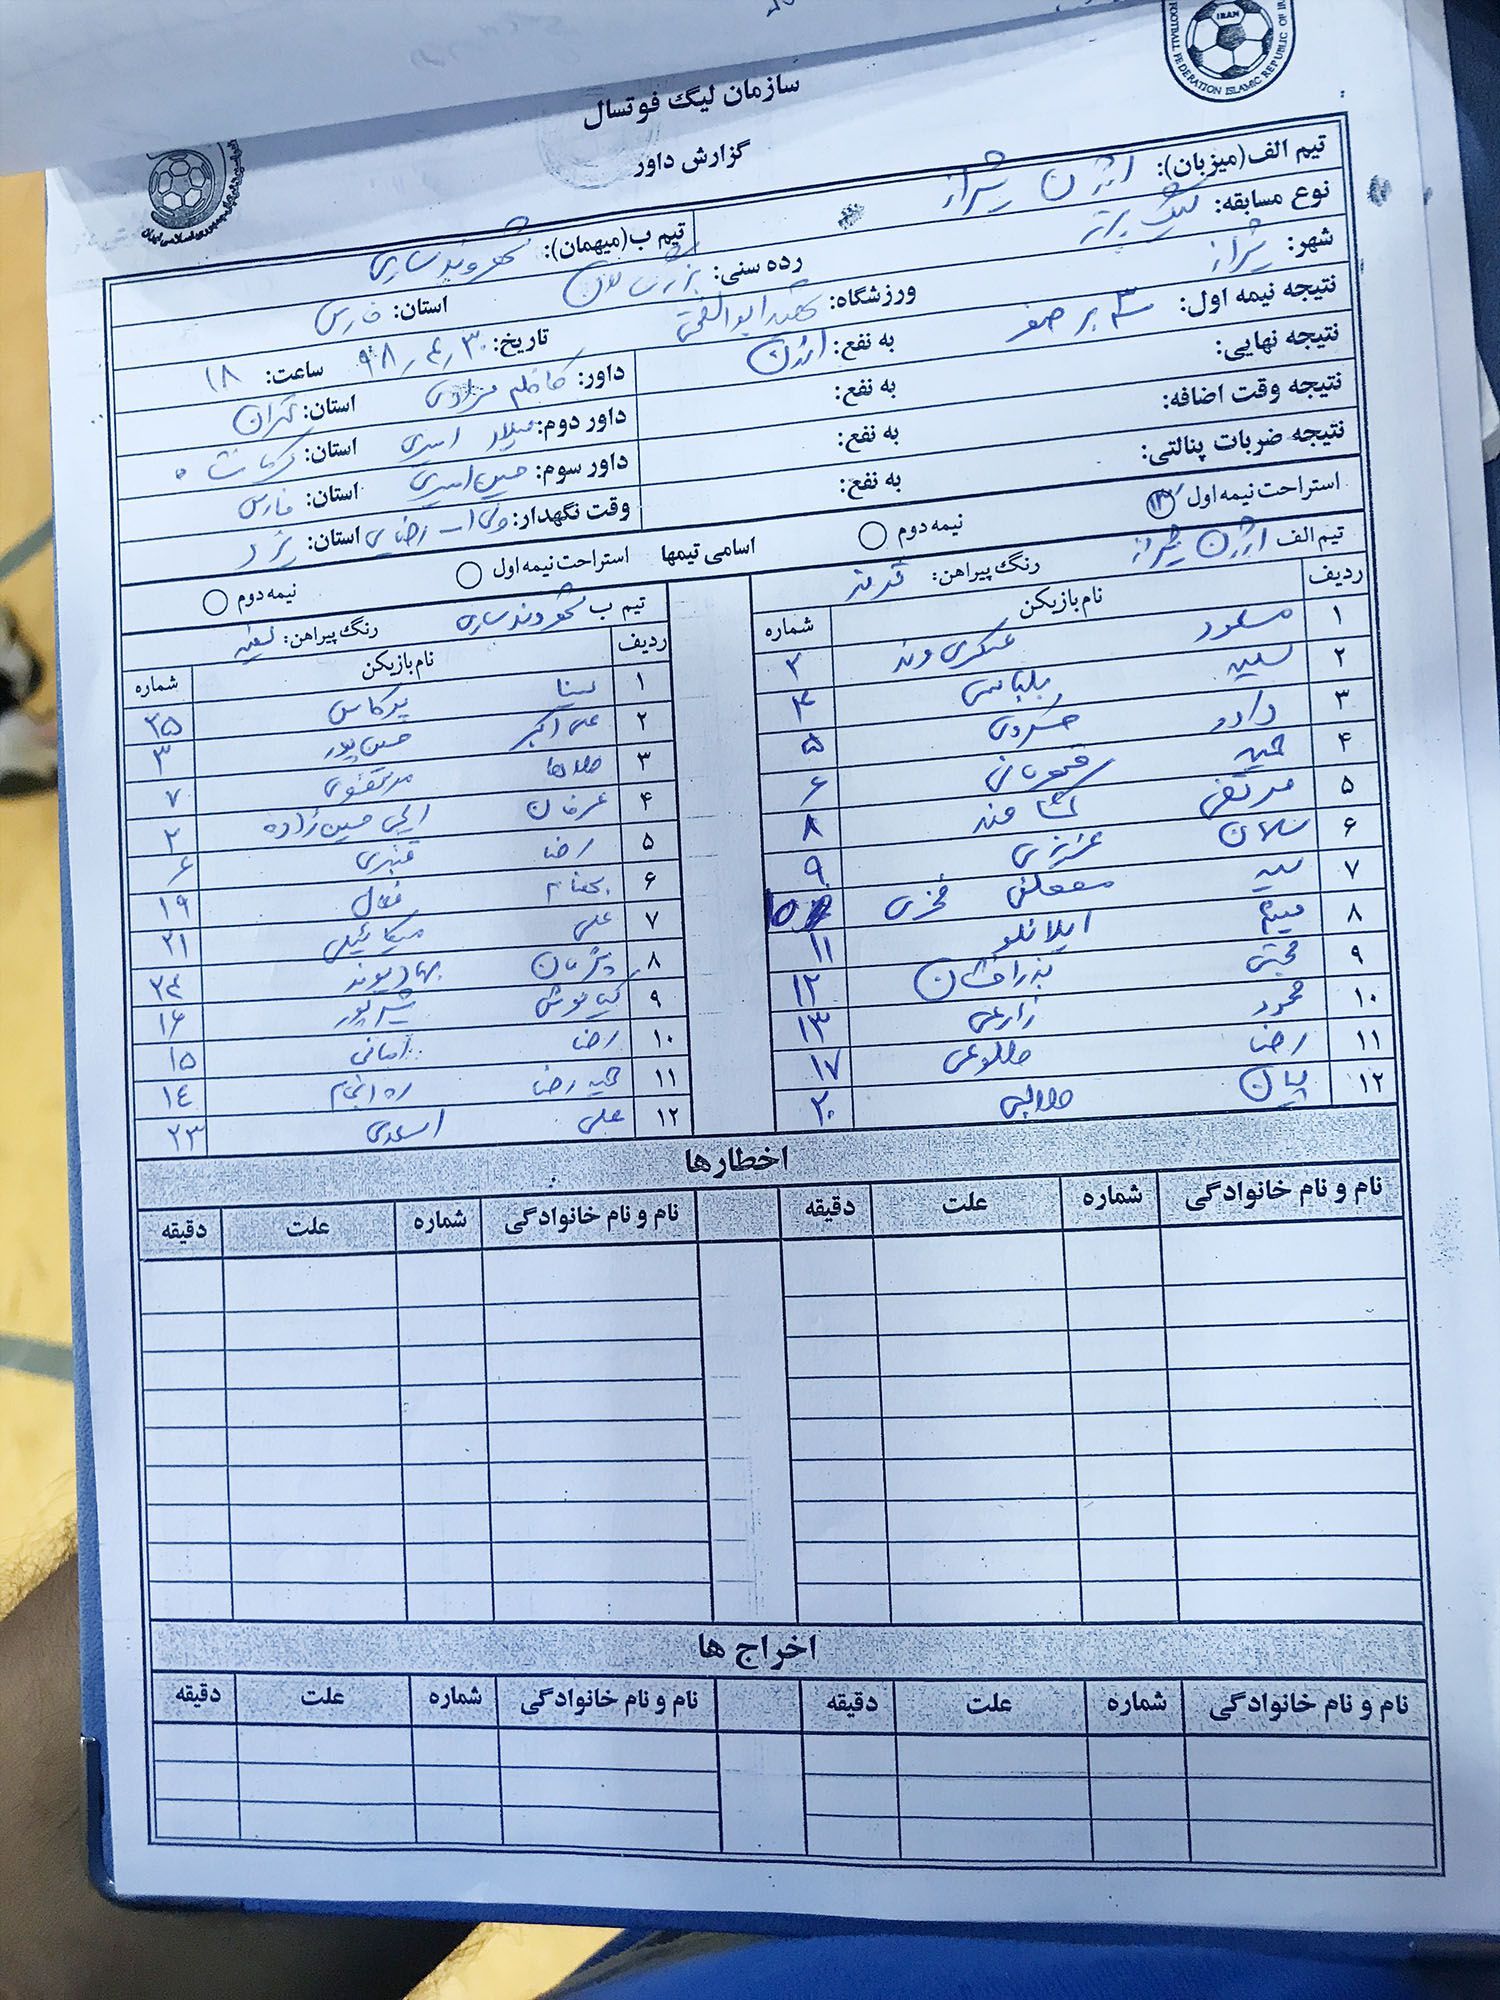 IRAN
FOOTBALL FEDERATION ISLAMIC REPUBLIC OF
سازمان لیگ فوتسال
گزارش داور
تیم الف(میزبان): ارژن شیراز
تیم ب(میهمان): شهروند ساری
نوع مسابقه: لیگ برتر
رده سنی: بزرگسالان
استان: فارس
شهر: شیراز
ورزشگاه: شهید ابوالفتحی
تاریخ: ۹۸٫۴٫۳۰ ساعت: ۱۸
نتیجه نیمه اول: ۳ بر صفر به نفع: ارژن
داور: کاظم مرادی استان: تهران
نتیجه نهایی: به نفع:
داور دوم: میلاد امیری استان: کرمانشاه
نتیجه وقت اضافه: به نفع:
داور سوم: حسین امیری استان: فارس
نتیجه ضربات پنالتی: به نفع:
وقت نگهدار: رضایی استان: یزد
استراحت نیمه اول نیمه دوم اسامی تیمها استراحت نیمه اول نیمه دوم
تیم الف ارژن شیراز رنگ پیراهن: قرمز
تیم ب شهروند ساری رنگ پیراهن: سفید
ردیف نام بازیکن شماره
۱ مسعود عسکری وند ۲
۲ بلباسی ۴
۳ داود خسروی ۵
۴ حمید قهرمانی ۶
۵ مرتضی ۸
۶ عزیزی ۹
۷ سید مصطفی فخری 10
۸ میثم ایلانلو ۱۱
۹ مجتبی بذرافشان ۱۲
۱۰ محمود زارعی ۱۳
۱۱ رضا طلوعی ۱۷
۱۲ پیمان طالبی ۲۰
ردیف نام بازیکن شماره
۱ سینا پرکاس ۲۵
۲ علی اکبر حسین پور ۳
۳ طاها مرتضوی ۷
۴ عرفان حسین زاده ۲
۵ رضا قنبری ۶
۶ بهنام فعال ۱۹
۷ علی میکائیلی ۲۱
۸ پژمان بهادیوند ۲۴
۹ کیانوش شیرپور ۱۶
۱۰ رضا امانی ۱۵
۱۱ حمید رضا ره انجام ۱۴
۱۲ علی اسعدی ۲۳
اخطارها
نام و نام خانوادگی شماره علت دقیقه نام و نام خانوادگی شماره علت دقیقه
اخراج ها
نام و نام خانوادگی شماره علت دقیقه نام و نام خانوادگی شماره علت دقیقه